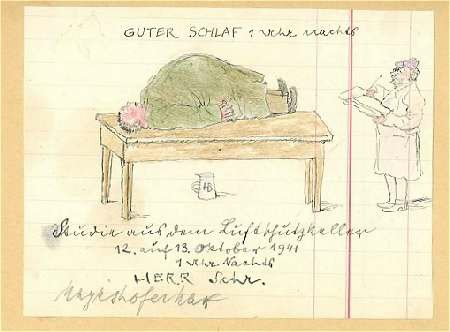 GUTER SCHLAF 1 Uhr Nachts
HB
Studie aus dem Luftschutzkeller
12. auf 13. Oktober 1941
1 Uhr Nachts
HERR Schr.